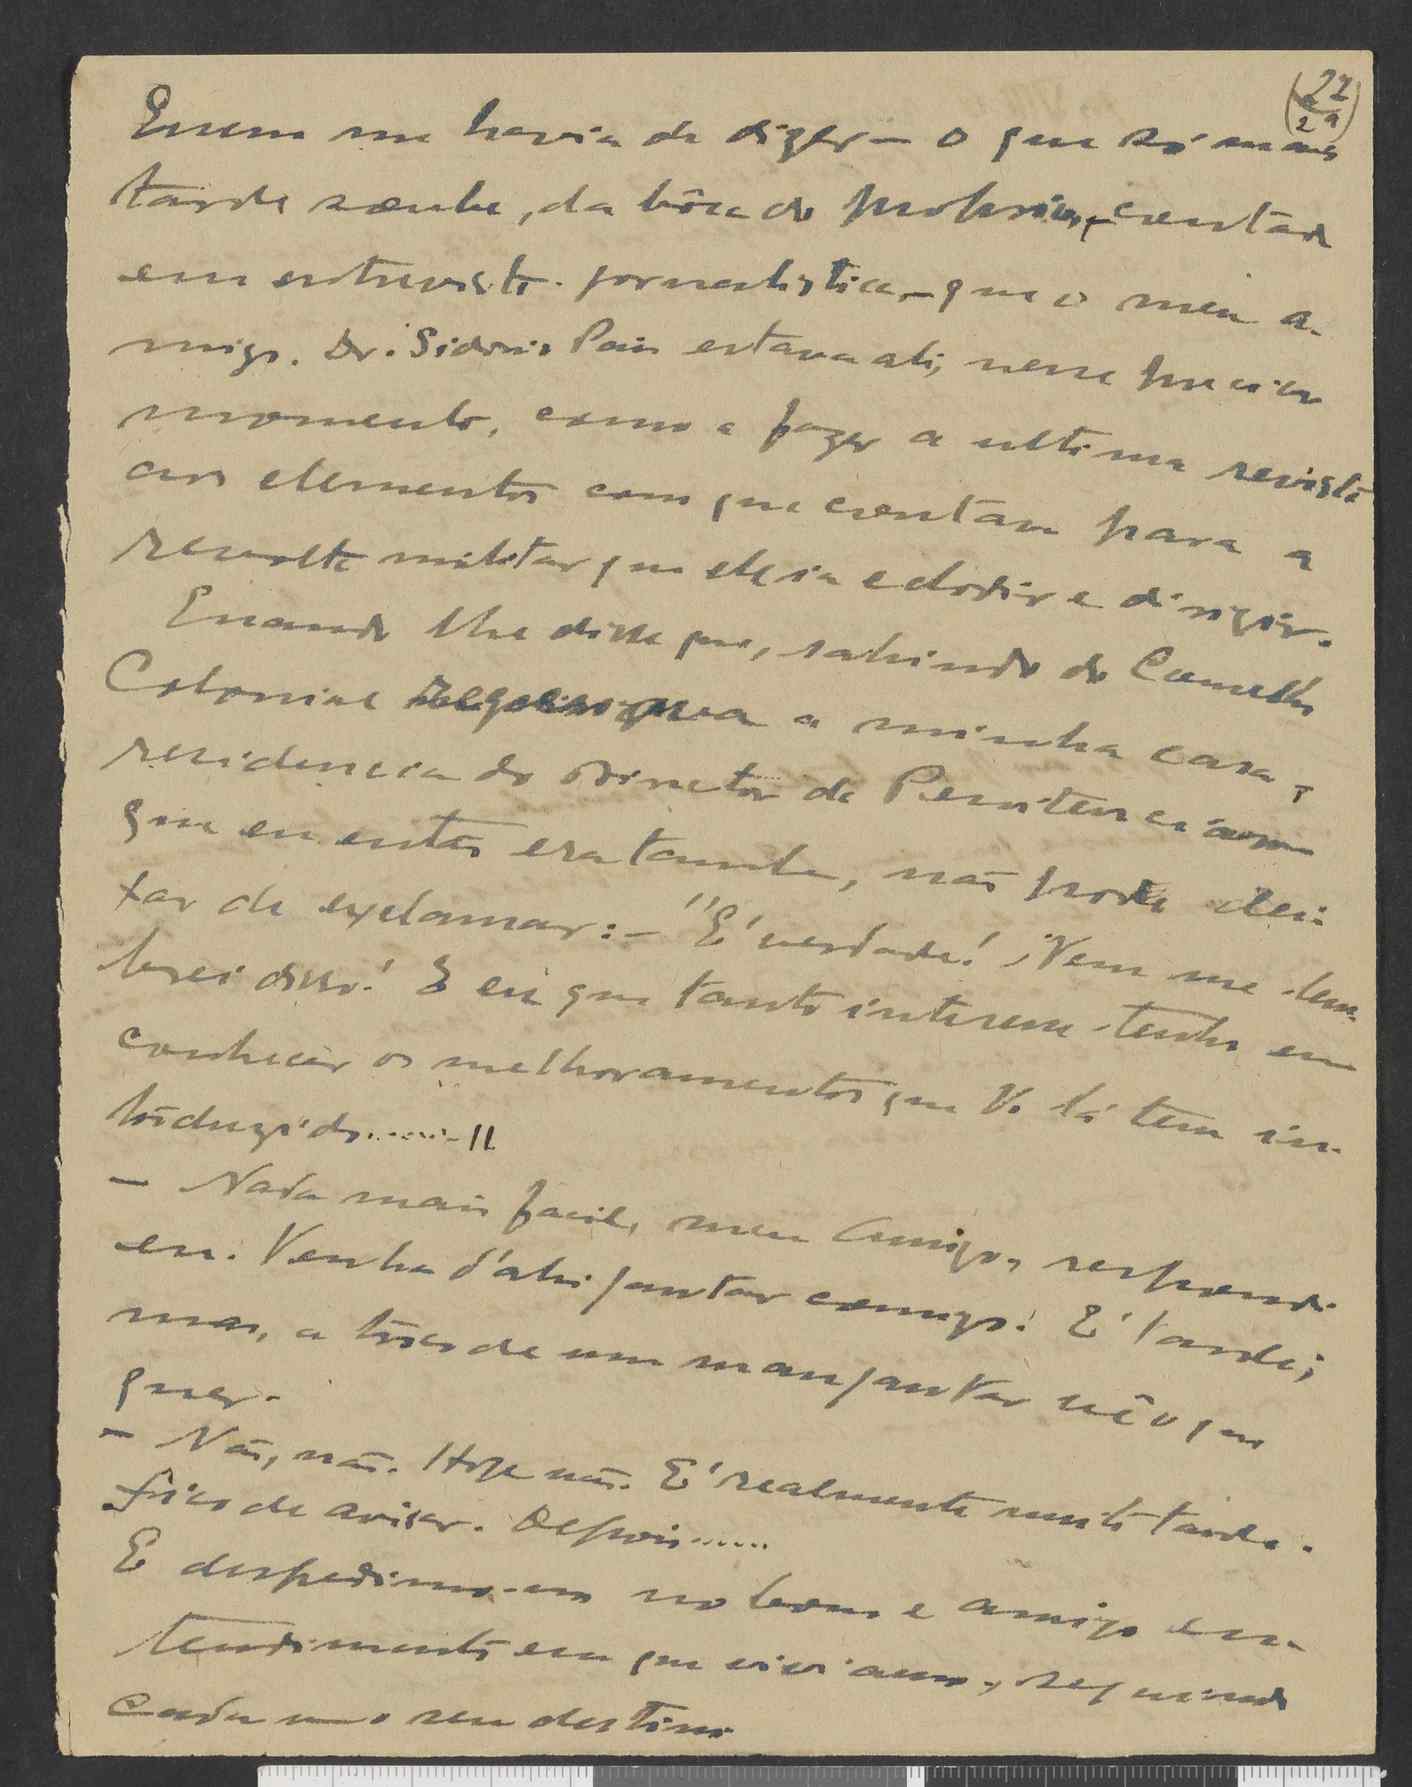 (22
2ª)
Quem me havia de dizer – o que só mais
tarde soube, da bôca do proprio, contado
em entrevista jornalistica, – que o meu a-
migo Dr. Sidonio Pais estava ali, nesse preciso
momento, como a fazer a ultima revista
aos elementos com que contava para a
revolta militar que ele ia eclodir e dirigir.
Quando lhe disse que, sahindo do Conselho
Colonial regressava a minha casa,
residencia do Director da Penitenciaria
que eu então era tambem, não poude dei-
xar de exclamar: – "E' verdade! Nem me lem-
brei disso! E eu que tanto interesse tenho em
conhecer os melhoramentos que V. lá tem in-
troduzido......"
– Nada mais facil, meu Amigo, respondi
eu. Venha d'ahi jantar comigo! E' tarde;
mas, a troco de um mau jantar vê o que
quer.
– Não, não. Hoje não. E' realmente muito tarde.
Fico de avisar. Depois......
E despedimo-nos no bom e amigo en-
tendimento em que viviamos, seguindo
cada um o seu destino